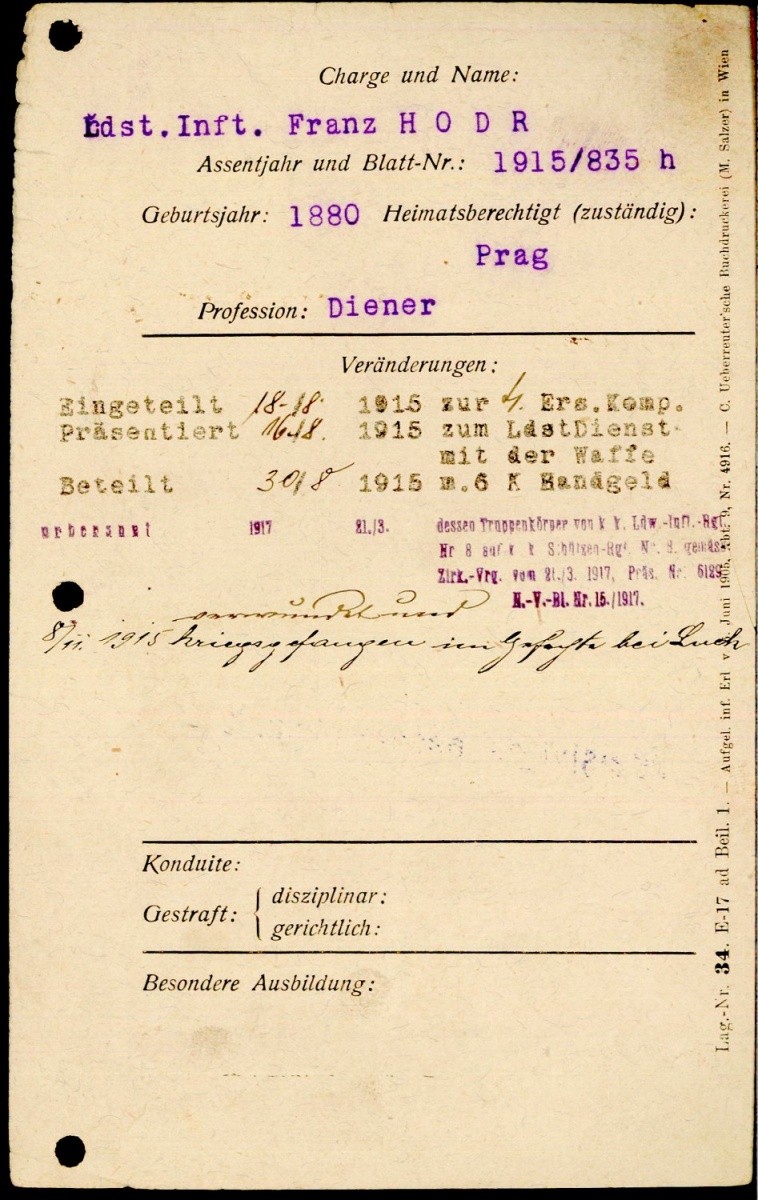 Charge und Name:
Ldst.Inft. Franz H O D R
Assentjahr und Blatt-Nr.: 1915/835 h
Geburtsjahr: 1880 Heimatsberechtigt (zuständig):
Prag
Profession: Diener
Veränderungen:
Eingeteilt 18-/8. 1915 zur 4. Ers.Komp.
Präsentiert 16/8. 1915 zum LdstDienst
mit der Waffe
Beteilt 30/8 1915 m.6 K Handgeld
1917 21./3. dessen Truppenkörper von k. k. Ldw.-Inft.-Rgt.
Nr 8 auf k. k. Schützen-Rgt. Nr. 8 gemäss
Zirk.-Vrg. vom 21./3. 1917, Präs. Nr. 6129
N.-V.-Bl. Nr. 15./1917.
verwundet und
8/11. 1915 kriegsgefangen im Gefechte bei Luck
Konduite:
Gestraft: { disziplinar:
gerichtlich:
Besondere Ausbildung:
Lag.-Nr. 34. E-17 ad Beil. 1. — Aufgel. inf. Erl v. Juni 1905, Abt. 9, Nr. 4916. — C. Ueberreuter'sche Buchdruckerei (M. Salzer) in Wien